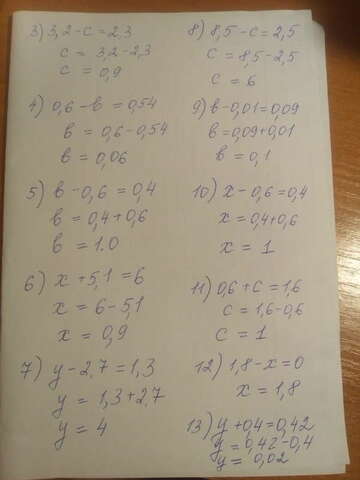 3) 3,2-c=2,3
c = 3,2-2,3
c = 0,9
4) 0,6-в=0,54
в = 0,6-0,54
в = 0,06
5) в-0,6=0,4
в = 0,4+0,6
в = 1.0
6) x+5,1=6
x = 6-5,1
x = 0,9
7) y-2.7=1,3
y = 1,3+2.7
y = 4
8) 8,5-c=2,5
c = 8,5-2,5
c = 6
9) в-0,01=0,09
в=0,09+0,01
в = 0,1
10) x-0,6=0,4
x=0,4+0,6
x = 1
11) 0,6+c=1,6
c = 1,6-0,6
c = 1
12) 1,8-x=0
x = 1,8
13) y+0,4=0,42
y=0,42-0,4
y= 0,02